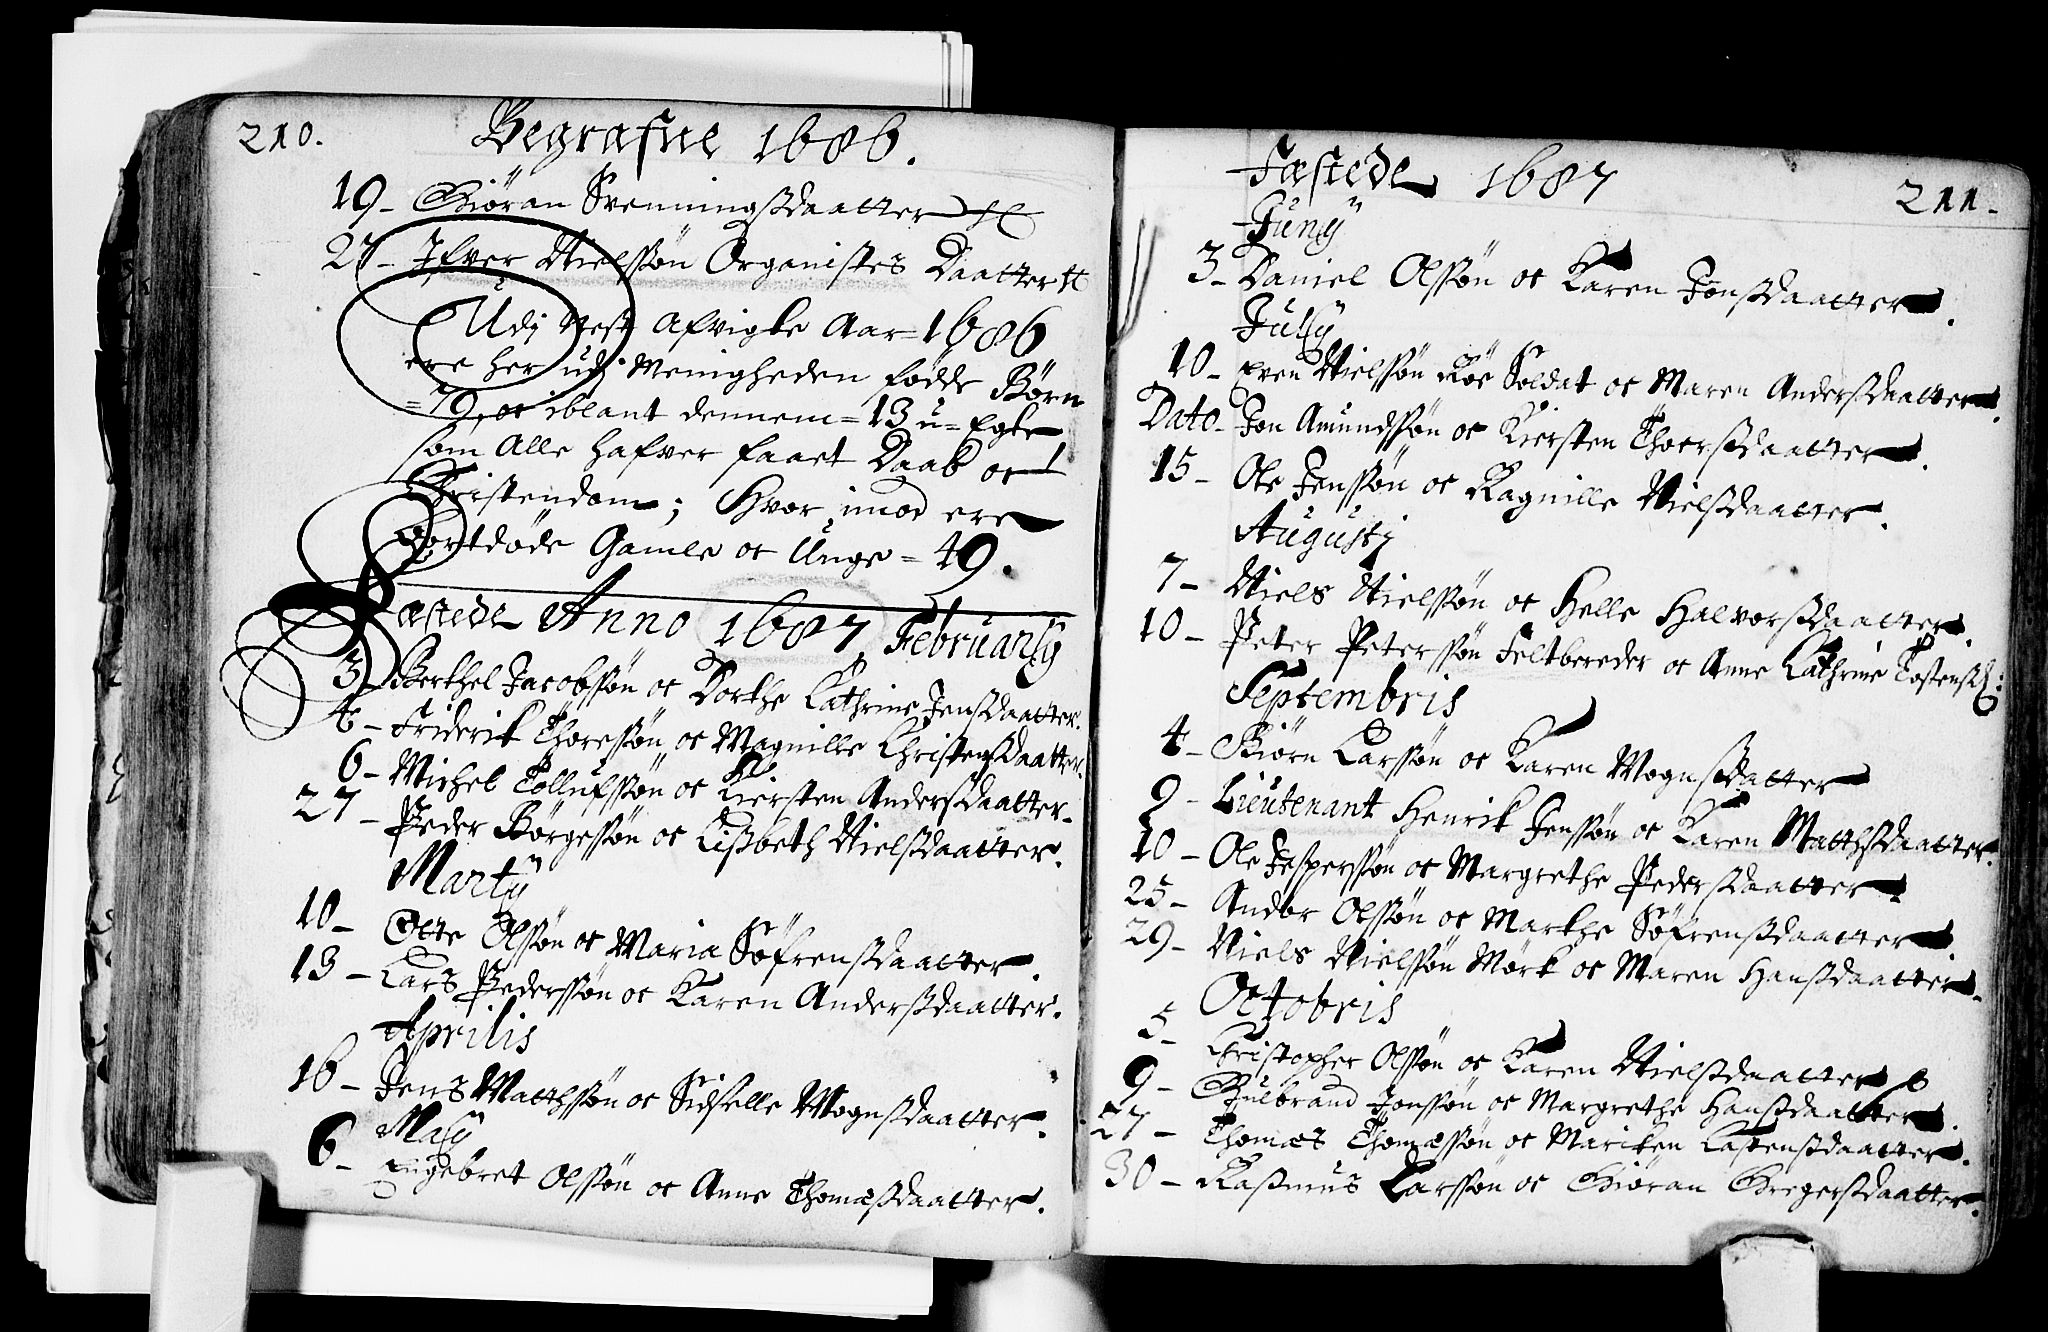 210.
Begrafne 1686.
19 – Giöran Svenningßdaatter
27 – Ifver Nielßøn Organistes Daatter
Udj Nest Afvigte Aar = 1686
ere her udj Menigheden fødde Børn
= 79, oc iblant dennem = 13 u = Egte
som Alle hafver faaet Daab oc
Christendom; Hvor imod ere
bortdöde Gamle oc Unge = 49.
Fæstede Anno 1687 Februarij
3 – Berthel Jacobßøn oc Dorthe Cathrine Jenßdaatter.
4 – Friderik Thoreßøn oc Magnille Christenßdaatter.
6 – Michel Tollufßøn oc Kiersten Anderßdaatter.
27 – Peder Börgeßøn oc Lißbeth Nielßdaatter.
Martij
10 – Otte Olßøn oc Maria Söfrenßdaatter.
13 – Lars Pederßøn oc Karen Anderßdaatter.
Aprilis
16 – Jens Matthßøn oc Sidselle Mognßdaatter.
Maij
6 – Engebret Olßøn oc Anne Thomæßdaatter.
Fæstede 1687
211.
Junij
3 – Daniel Olßøn oc Karen Jonßdaatter.
Julij
10 – Even Nielßøn Röe Soldat oc Maren Anderßdaatter.
Dato – Jon Amundßøn oc Kiersten Thoerßdaatter.
15 – Ole Jenßøn oc Ragnille Nielßdaatter.
Augustj
7 – Niels Nielßøn oc Helle Halvorßdaatter.
10 – Peter Peterßøn Feltbereder oc Anne Cathrine Tostensd:
Septembris
4 – Biörn Larßøn oc Karen Mognßdatter
9 – Lieutenant Henrik Jenßøn oc Karen Matthßdaatter.
10 – Ole Jesperßøn oc Margrethe Pederßdaatter
25 – Andor Olßøn oc Marthe Söfrenßdaatter.
29 – Niels Nielßøn Mörk oc Maren Hanßdaatter.
Octobris
5 – Christopher Olßøn oc Karen Nielßdaatter
9 – Gulbrand Jonßøn oc Margrethe Hanßdaatter.
27 – Thomæs Thomæßøn oc Mariken Lastenßdaatter.
30 – Raßmus Larßøn oc Giöran Gregerßdaatter.